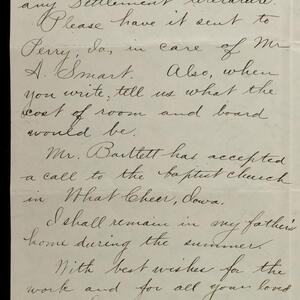 any Settlement literature.
Please have it sent to
Perry, Ia, in care of Mr
A. Smart. Also, when
you write, tell us what the
cost of room and board
would be.
Mr. Bartlett has accepted
a call to the baptist church
in What Cheer, Iowa.
I shall remain in my father's
home during the summer.
With best wishes for the
work and for all your loved